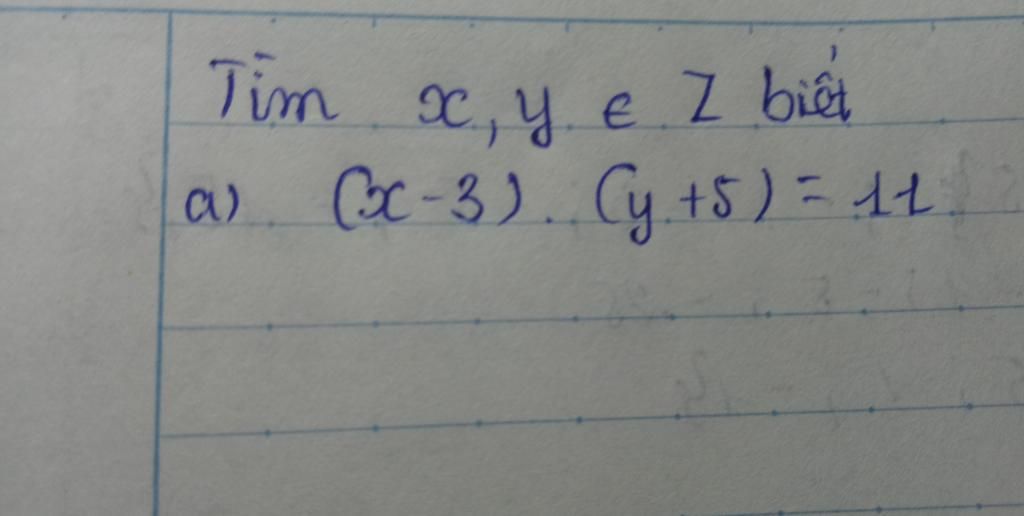 Tìm x, y ∈ Z biết
a) (x - 3) . (y + 5) = 11